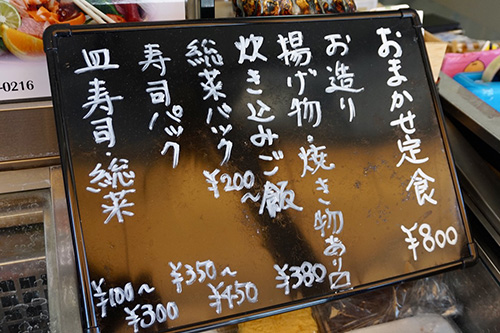 -0216
おまかせ定食 ¥800
お造り
揚げ物・焼き物あり〼
炊き込みご飯 ¥380
総菜パック ¥200~
寿司パック ¥350~
¥450
皿寿司・総菜 ¥100~
¥300